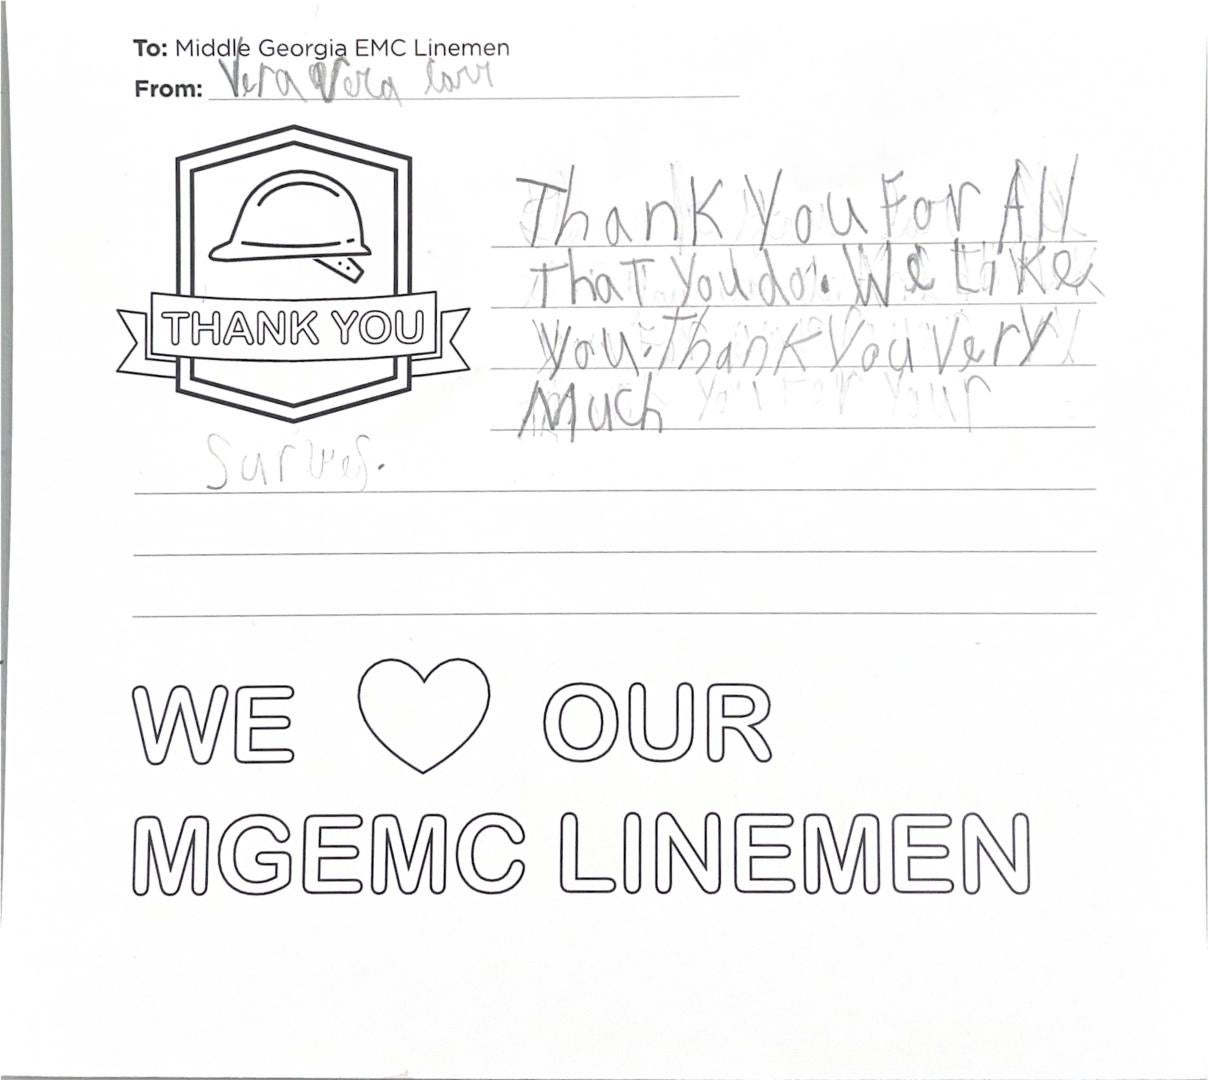 To: Middle Georgia EMC Linemen
From: Vera Vera Carr
THANK YOU
Thank You For All
That You do. We Like
You. Thank You Very
Much You For Your
Surves.
WE OUR
MGEMC LINEMEN